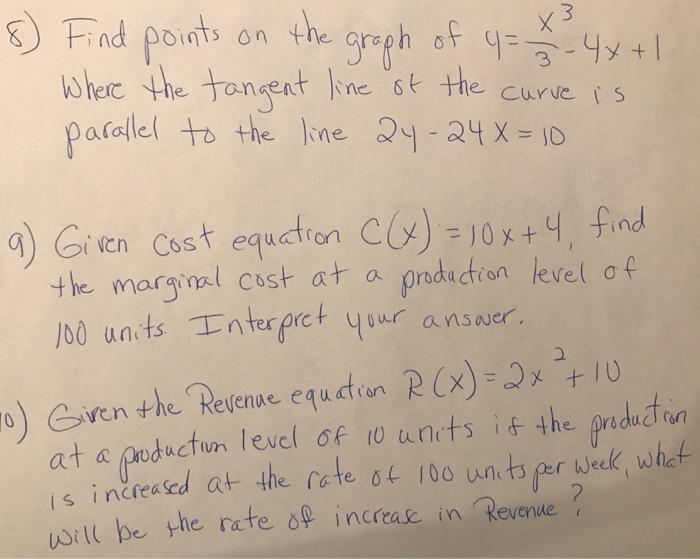 8) Find points on the graph of y = x³/3 - 4x + 1
Where the tangent line ot the curve is
parallel to the line 2y - 24x = 10
9) Given cost equation C(x) = 10x + 4, find
the marginal cost at a production level of
100 units. Interpret your answer.
10) Given the Revenue equation R(x) = 2x² + 10
at a production level of 10 units if the production
is increased at the rate of 100 units per week, what
will be the rate of increase in Revenue?